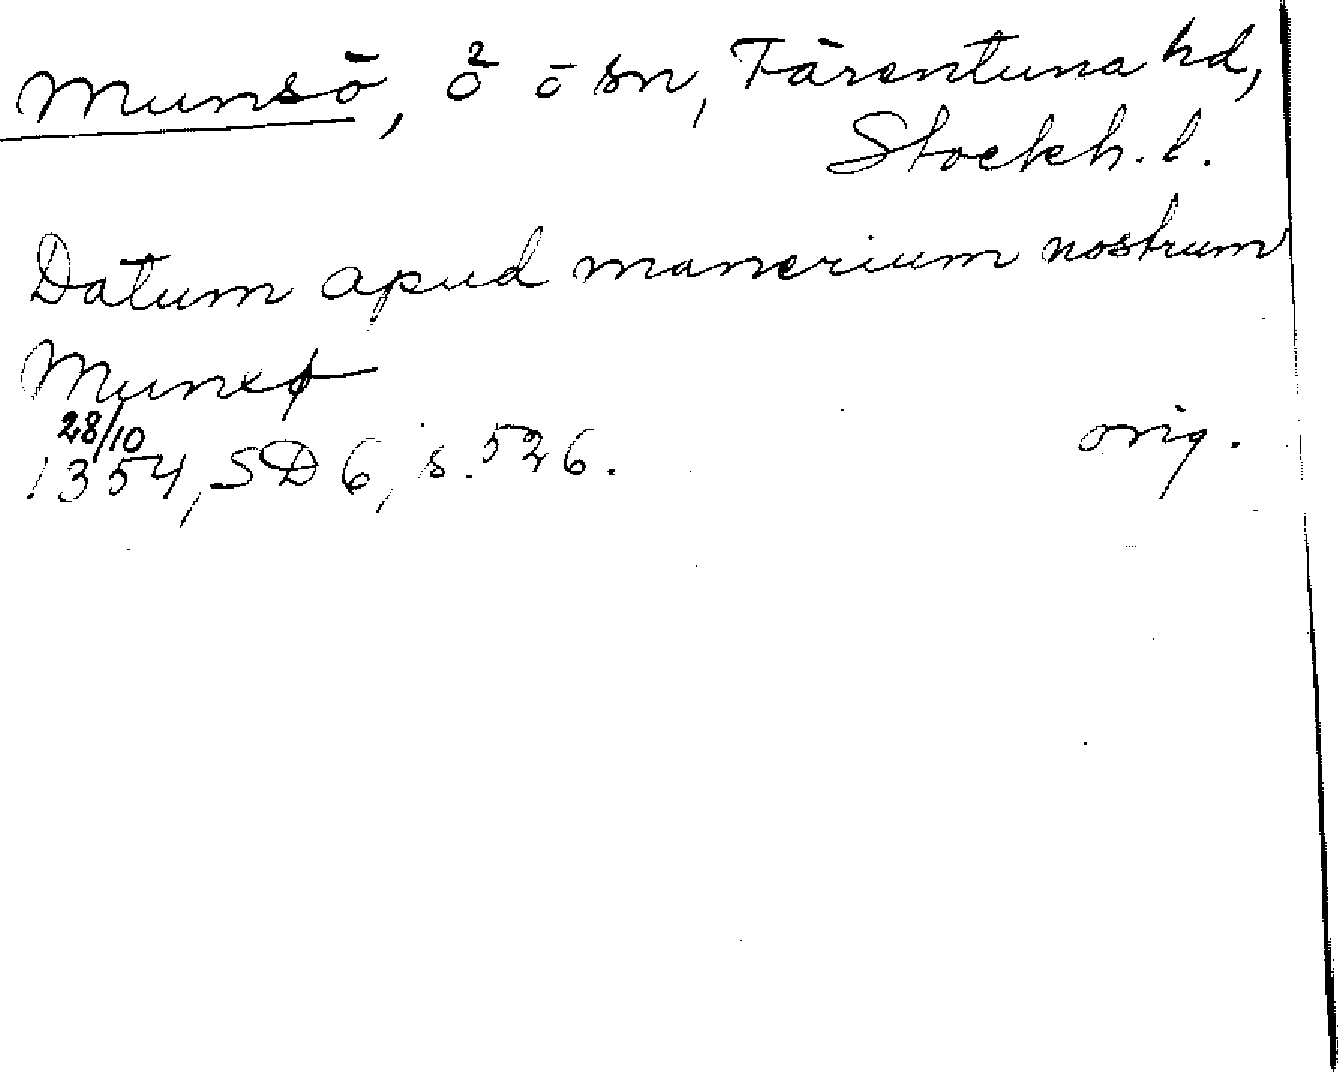 Munsö, ö² o sn, Färentuna hd,
Stockh. l.
Datum apud manerium nostrum
Munxø
28/10
1354, SD 6, s. 526. orig.